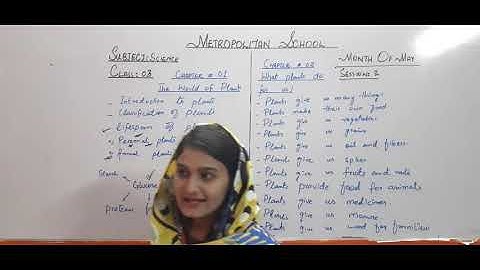 METROPOLITAN SCHOOL
SUBJECT: SCIENCE
CLASS: 03
MONTH OF MAY
SESSION: 2
CHAPTER # 01
The World of Plants
- Introduction to plants
- Classification of Plants
Lifespan of
plants
Annual plants
Starch
Glucose
protein
CHAPTER # 02
What plants do
for us?
- Plants give us many things
- Plants make their own food
- Plants give us vegetables
- Plants give us grains
- Plants give us oil and fibers
- Plants give us spices
- Plants give us fruits and nuts
- Plants provide food for animals
- Plants give us medicines
- Plants give us manure
- Plants give us wood for furniture